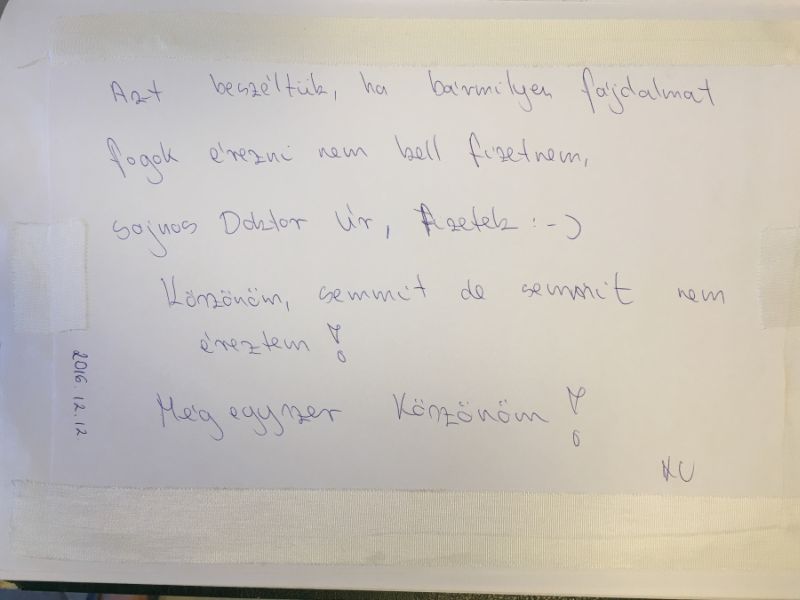 Azt beszéltük, ha bármilyen fájdalmat
fogok érezni nem kell fizetnem,
sajnos Doktor Úr, fizetek :-)
Köszönöm, semmit de semmit nem
éreztem !
Még egyszer Köszönöm !
KU
2016.12.12